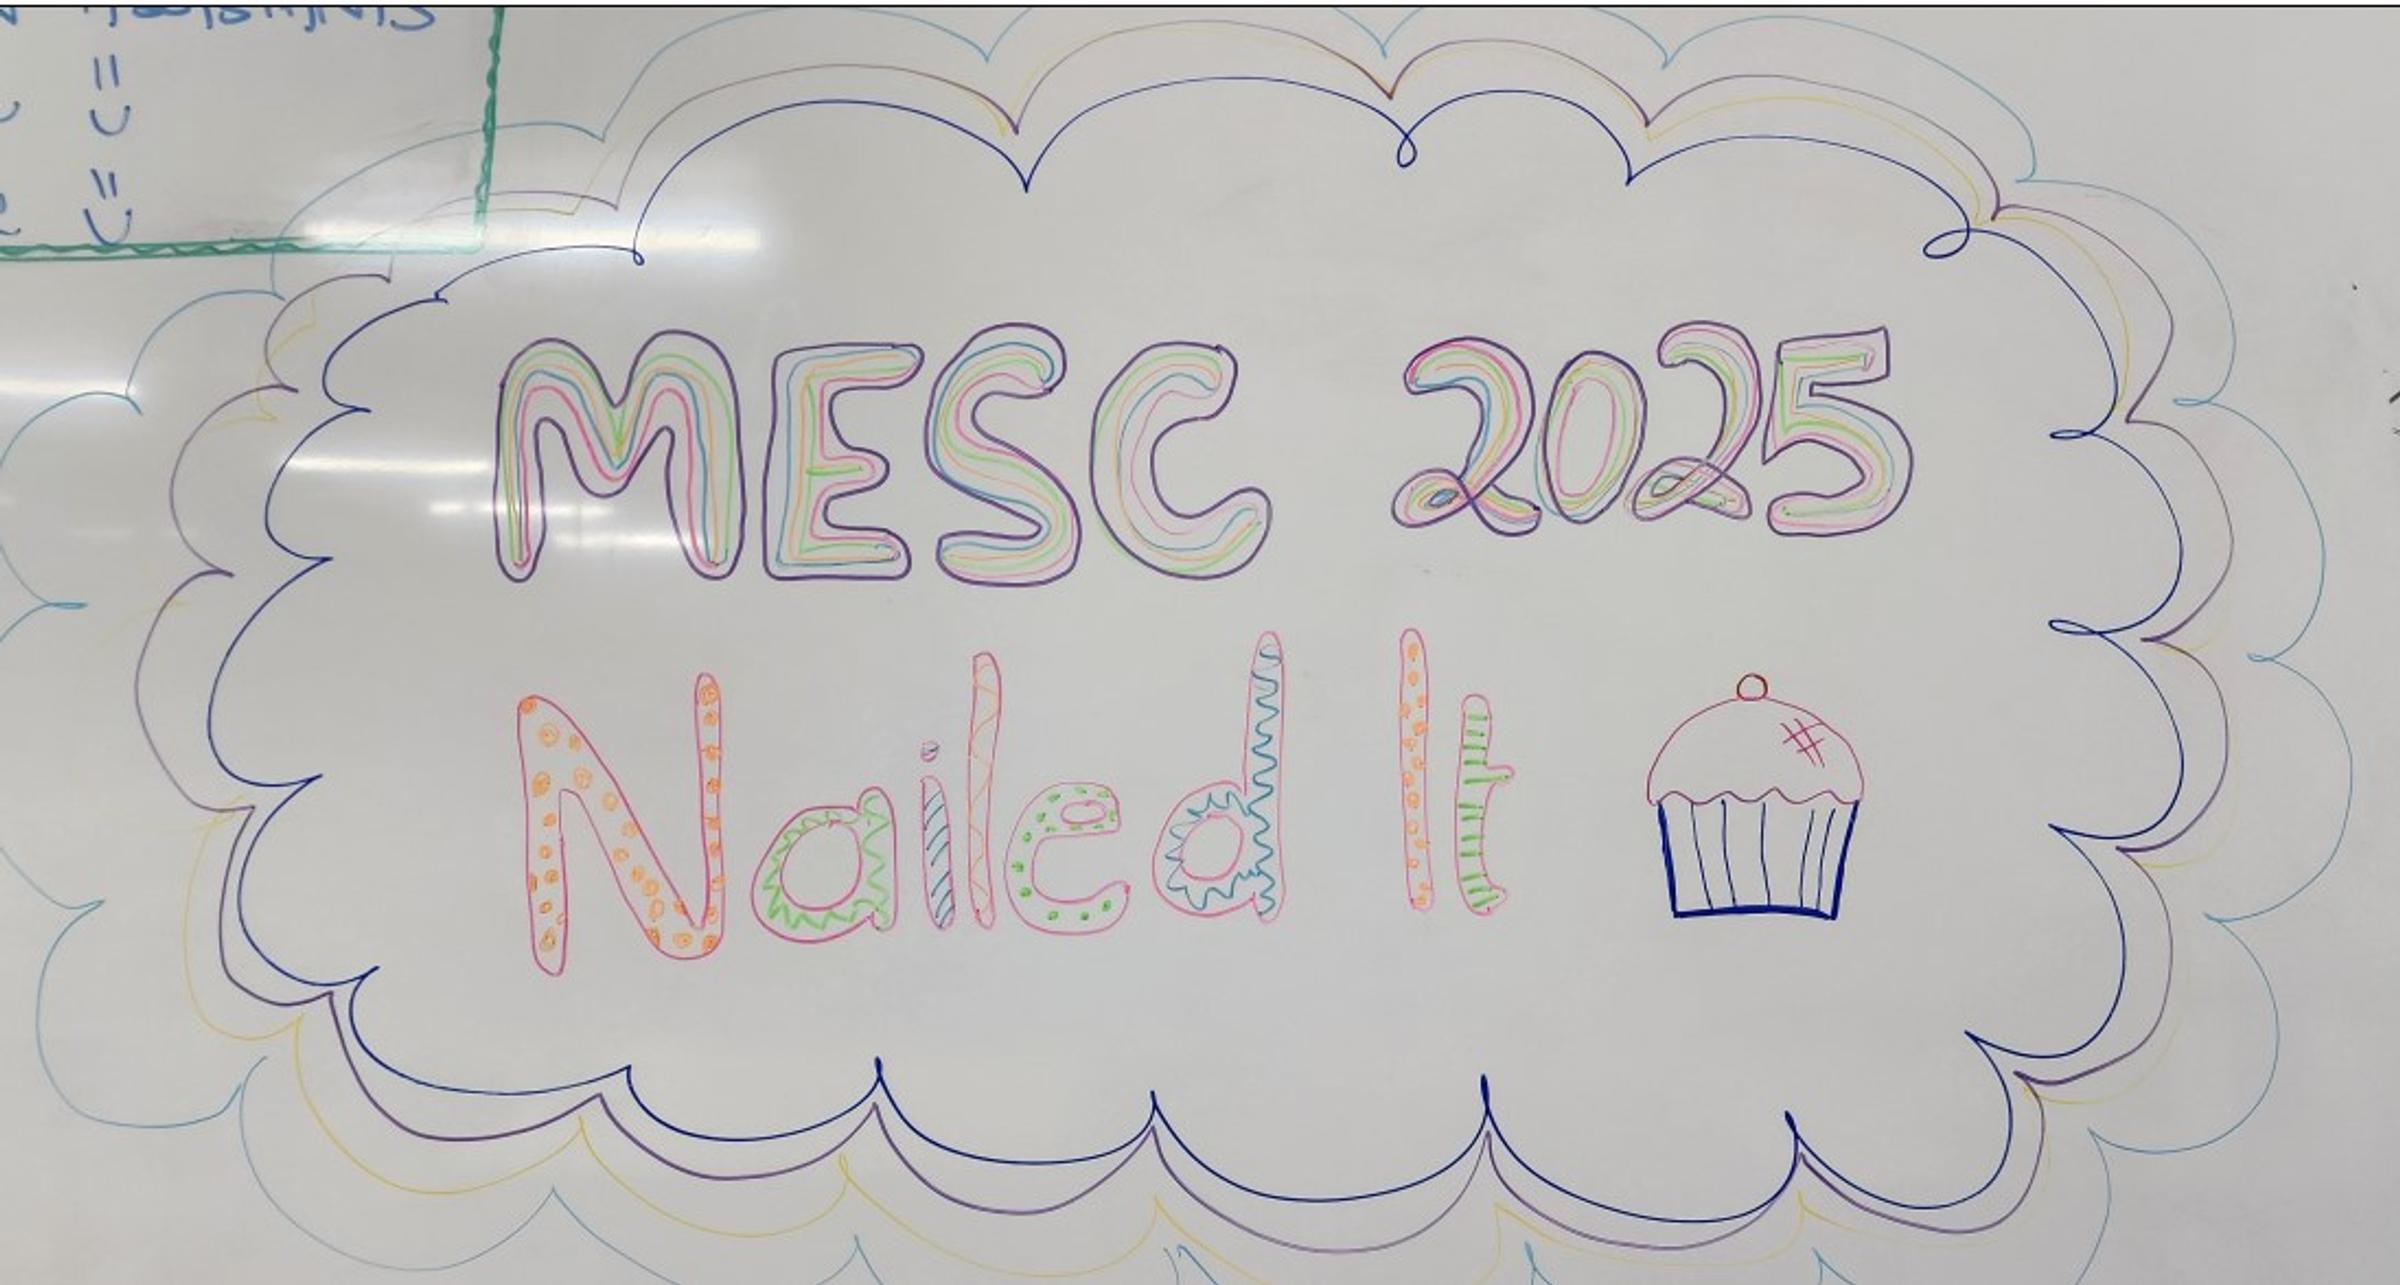 MESC 2025
Nailed It